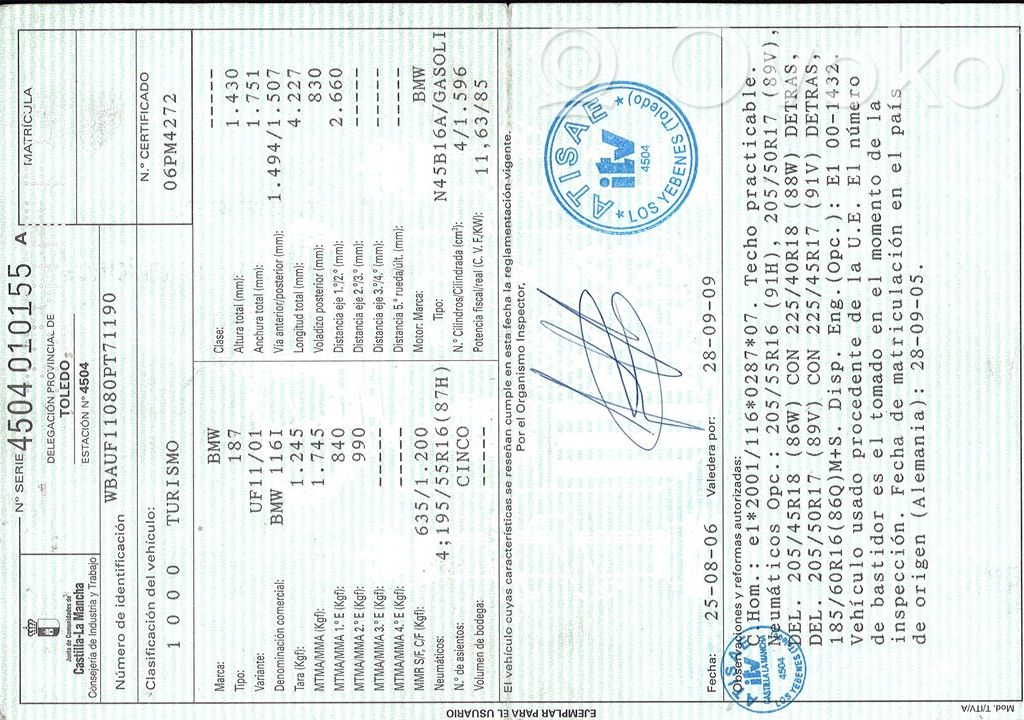 Junta de Comunidades de
Castilla-La Mancha
Consejería de Industria y Trabajo
Nº SERIE 4504 010155 A
DELEGACIÓN PROVINCIAL DE
TOLEDO
ESTACIÓN Nº 4504
MATRÍCULA
Número de identificación WBAUF11080PT71190
Clasificación del vehículo:
1000 TURISMO
N.º CERTIFICADO
06PM4272
Marca: BMW
Tipo: 187
Variante: UF11/01
Denominación comercial: BMW 116I
Tara (Kgf): 1.245
MTMA/MMA (Kgf): 1.745
MTMA/MMA 1.º E (Kgf): 840
MTMA/MMA 2.º E (Kgf): 990
MTMA/MMA 3.º E (Kgf): -----
MTMA/MMA 4.º E (Kgf): -----
MMR S/F, C/F (Kgf): 635/1.200
Neumáticos: 4;195/55R16(87H)
N.º de asientos: CINCO
Volumen de bodega: -----
Clase: -----
Altura total (mm): 1.430
Anchura total (mm): 1.751
Vía anterior/posterior (mm): 1.494/1.507
Longitud total (mm): 4.227
Voladizo posterior (mm): 830
Distancia eje 1.º/2.º (mm): 2.660
Distancia eje 2.º/3.º (mm): -----
Distancia eje 3.º/4.º (mm): -----
Distancia 5.ª rueda/últ. (mm): -----
Motor: Marca: BMW
Tipo: N45B16A/GASOLI
N.º Cilindros/Cilindrada (cm³): 4/1.596
Potencia fiscal/real (C. V. F./KW): 11,63/85
El vehículo cuyas características se reseñan cumple en esta fecha la reglamentación vigente.
Por el Organismo Inspector,
ATISAE
itv
4504
LOS YEBENES (Toledo)
Fecha: 25-08-06 Valedera por: 28-09-09
Observaciones y reformas autorizadas:
C.Hom.: e1*2001/116*0287*07. Techo practicable.
Neumáticos Opc.: 205/55R16 (91H), 205/50R17 (89V),
DEL. 205/45R18 (86W) CON 225/40R18 (88W) DETRAS,
DEL. 205/50R17 (89V) CON 225/45R17 (91V) DETRAS,
185/60R16(86Q)M+S. Disp. Eng.(Opc.): E1 00-1432.
Vehículo usado procedente de la U.E. El número
de bastidor es el tomado en el momento de la
inspección. Fecha de matriculación en el país
de origen (Alemania); 28-09-05.
ATISAE
itv
CASTILLA LA MANCHA
4504
LOS YEBENES (Toledo)
EJEMPLAR PARA EL USUARIO
Mod. T/ITV/A
Ovoko